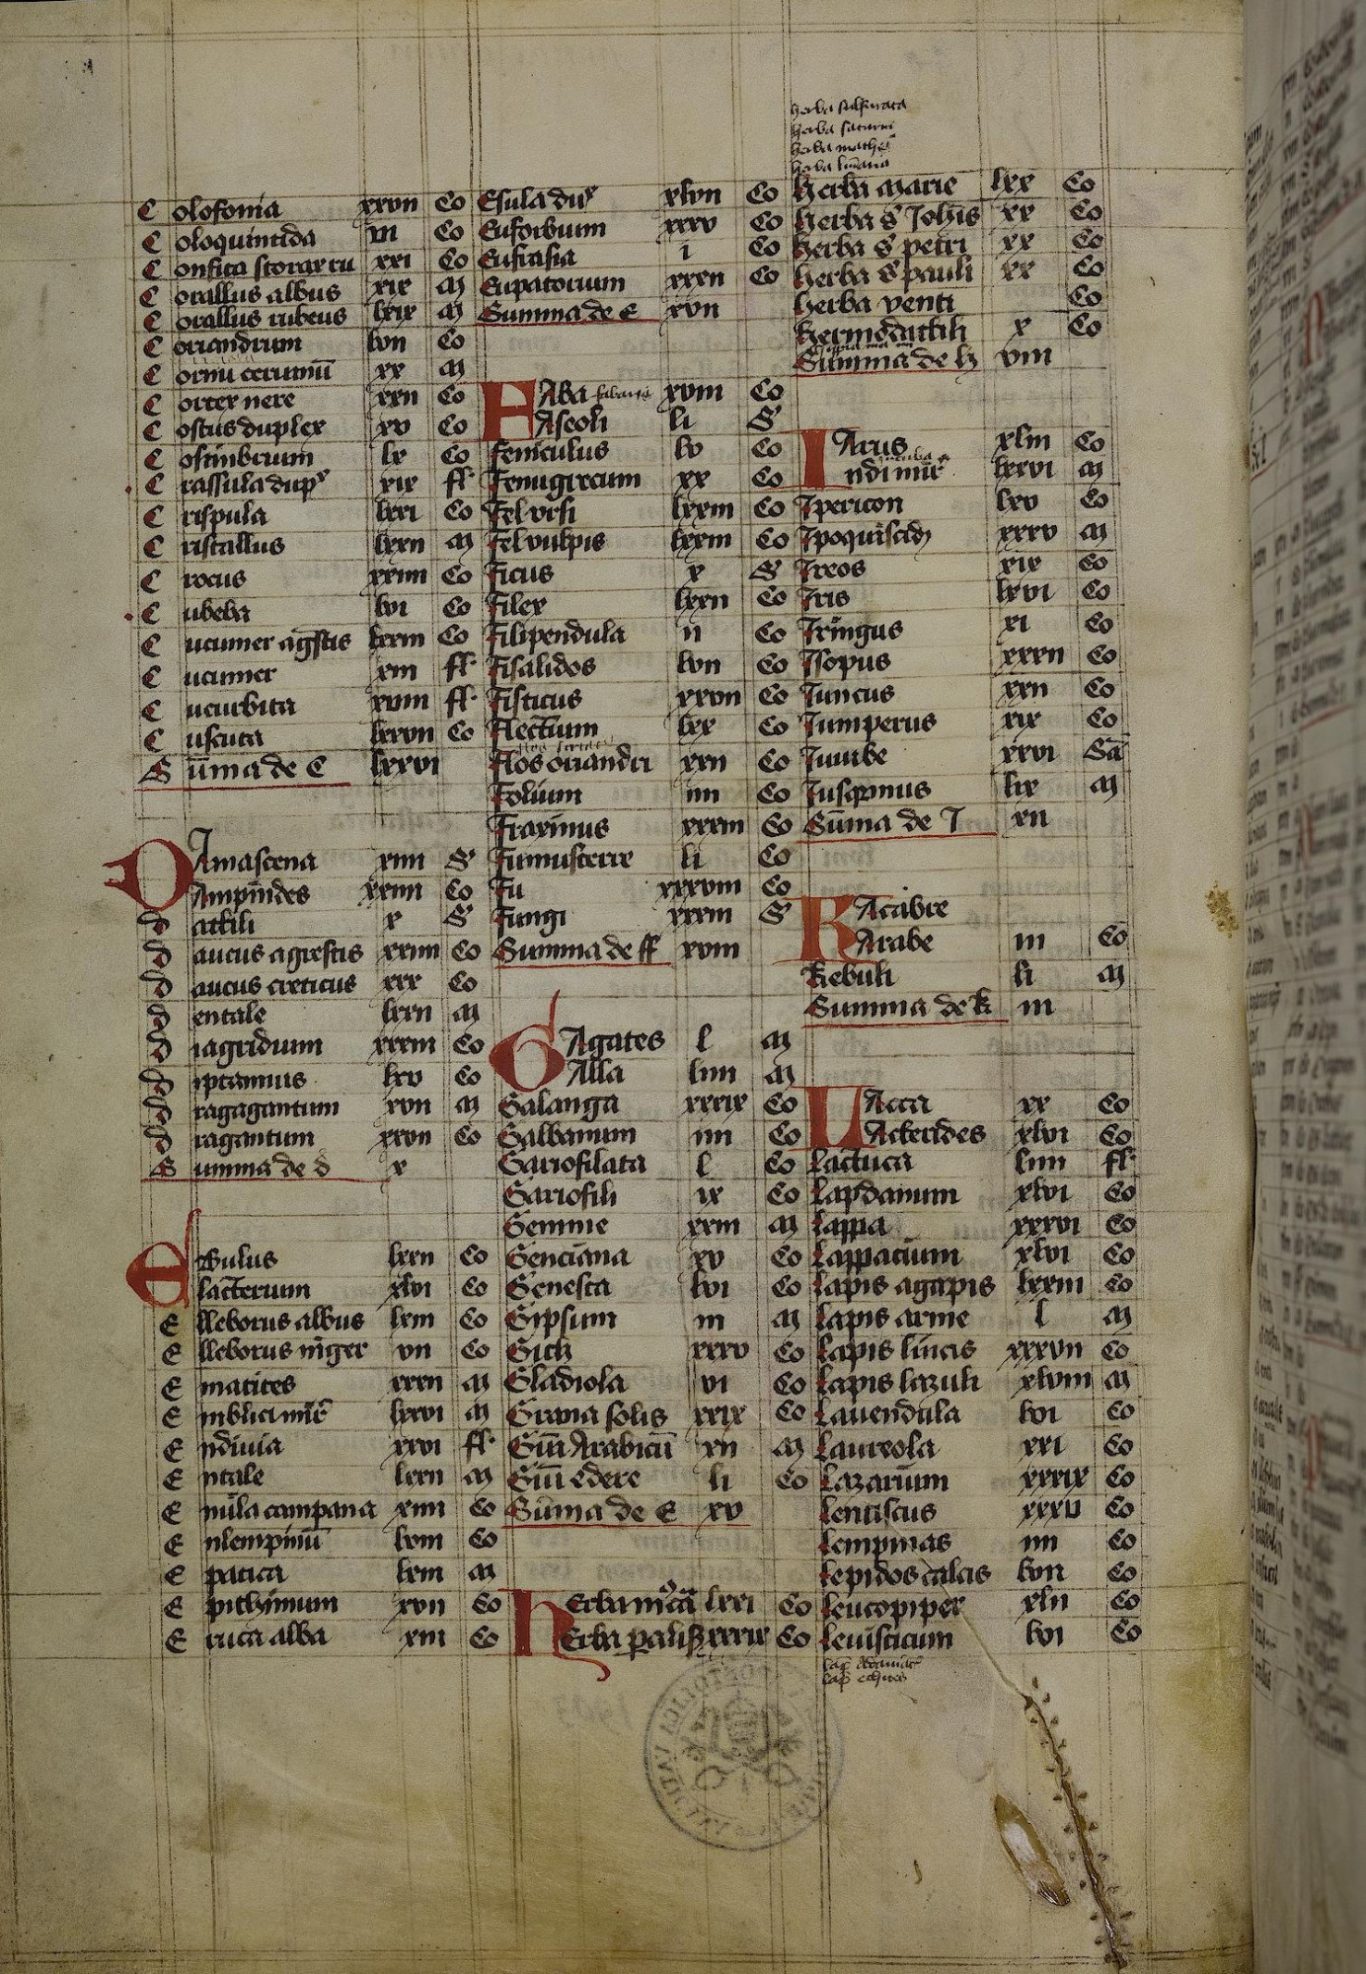 C olofonia xxvii Co
C oloquintida vii Co
C onfita storax ru xxi Co
C orallus albus xix m
C orallus rubeus lxix m
C oriandrum lvii Co
C ornu ceruinū xx m
C ortex nere xxii Co
C ostus duplex xv Co
C ostinbrium lx Co
C rassula dup xix ff
C rispula lxxi Co
C ristallus lxxii m
C rocus xxiiii Co
C ubeba lvi Co
C ucumer agstis lxxiii Co
C ucumer xiii ff
C ucurbita xviii ff
C uscuta lxxvii Co
S ūma de C lxxvi
D Amascena xiiii S
Ampnides xxiiii Co
d actili x S
d aucus agrestis xxiiii Co
d aucus creticus xxx Co
d entale lxxii m
d iagridium xxxiii Co
d iptamus lxv Co
d ragagantum xvii m
d ragantum xxvii Co
S umma de d x
E Bulus lxxii Co
lacterium xlvi Co
E lleborus albus lxiii Co
E lleborus niger vii Co
E matites xxxii m
E mblici mir lxxvi m
E ndiuia xxvi ff
E ntale lxxii m
E nula campana xiiii Co
E nlempinū lviii Co
E patica lxiii m
E pithimum xvii Co
E ruca alba xiii Co
Esula dup xlvii Co
Euforbium xxxv Co
Eufrasia i Co
Eupatorium xxxii Co
Summa de E xvii
F Aba xviii Co
Aseoli li S
Feniculus lv Co
Fenugrecum xx Co
Fel vrsi lxxiii Co
Fel vulpis lxxiii Co
Ficus x S
Filex lxxii Co
Filipendula ii Co
Fisalidos lvii Co
Fisticus xxvii Co
Flectum lxx Co
Flos oriandri xxii Co
Folium iiii Co
Fraxinus xxxiii Co
Fumusterre li Co
Fu xxxviii Co
Fungi xxxiii S
Summa de ff xviii
G Agates l m
Alla liiii m
Galanga xxxix Co
Galbanum iiii Co
Gariofilata l Co
Gariofili ix Co
Gemme xxiii m
Genciana xv Co
Genesta lvi Co
Gipsum iii m
Gith xxxv Co
Gladiola vi Co
Grana solis xxix Co
Gūi Arabicū xii m
Gūi edere li Co
Sūma de G xv
H Erba mcā lxxi Co
Erba paralis xxxix Co
herba sulfurata
herba saturni
herba mathei
herba lunaria
Herba marie lxx Co
Herba S Johis xx Co
Herba S petri xx Co
Herba S pauli xx Co
Herba venti Co
Hermodattili x Co
Summa de h viii
I Arus xliii Co
ndi mir lxxvi m
Ipericon lxv Co
Ipoquistid xxxv m
Ireos xix Co
Iris lxvi Co
Iringus xi Co
Isopus xxxii Co
Iuncus xxii Co
Iumperus xix Co
Iuiube xxvi Sa
Iusqmus lix m
Sūma de I xii
K Acabre
Arabe iii Co
Kebuli li m
Summa de k iii
L Acca xx Co
Acterides xlvi Co
Lactuca liiii ff
Lapdanum xlvi Co
Lappa xxxvi Co
Lappacium xlvi Co
Lapis agapis lxxiii Co
Lapis arme l m
Lapis lincis xxxvii Co
Lapis lazuli xlviii m
Lauendula lvi Co
Laureola xxi Co
Lazarium xxxix Co
Lentiscus xxxv Co
Lempnias iiii Co
Lepidos calcis lvii Co
Leucopiper xlii Co
Leuisticum lvi Co